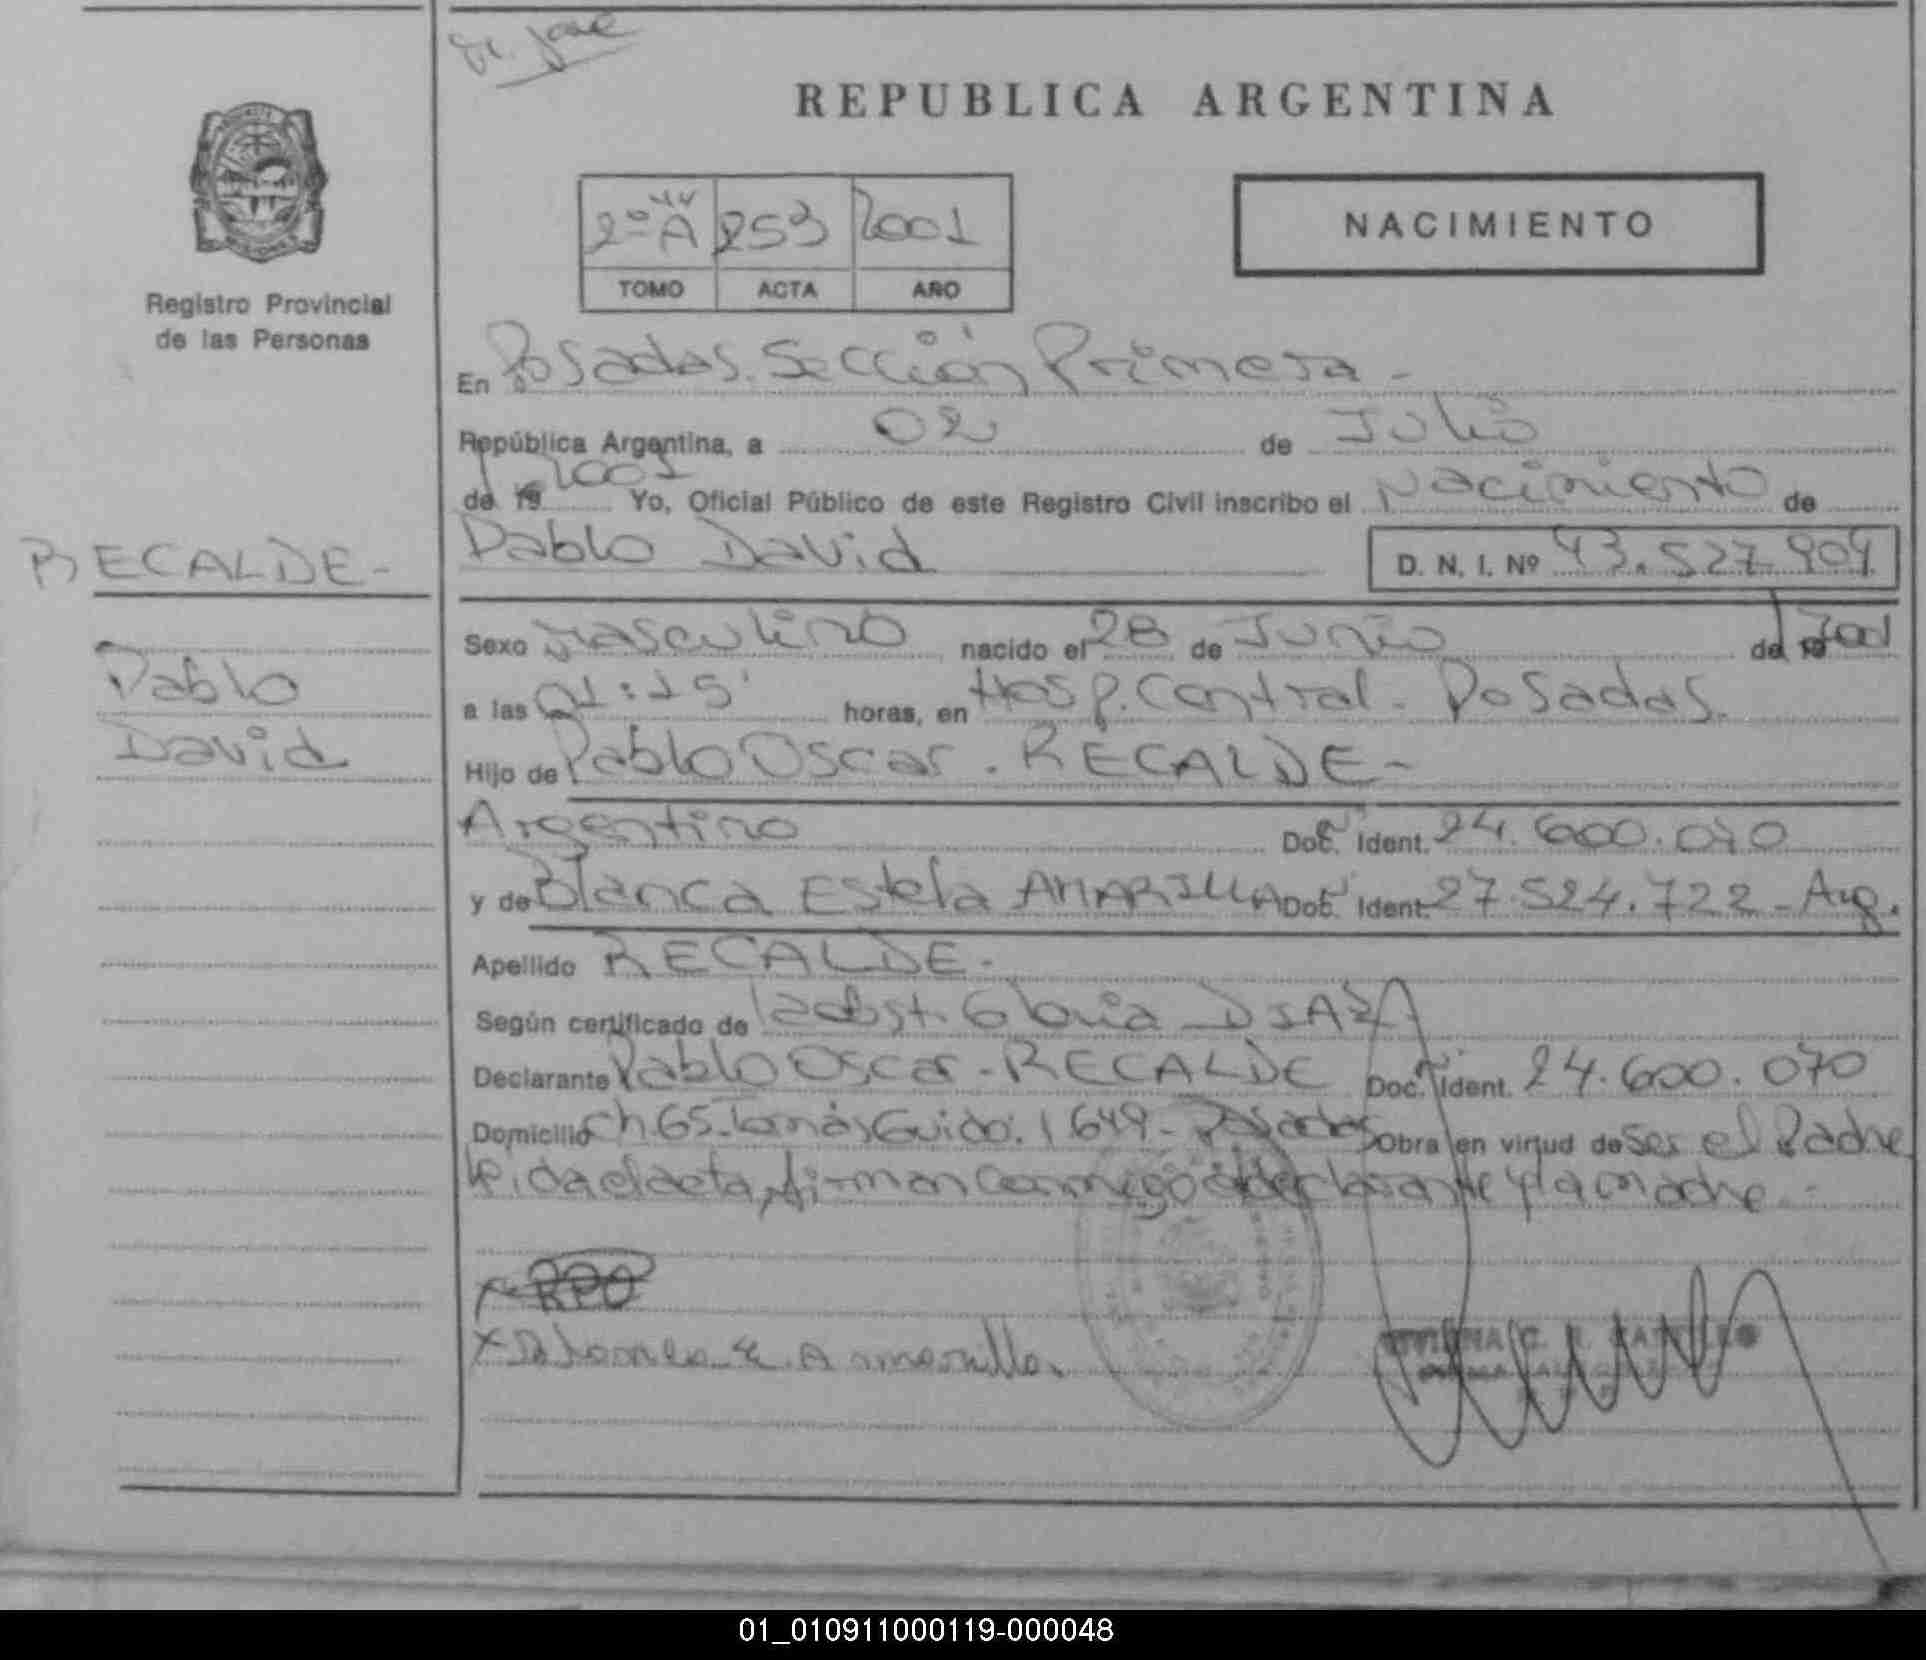 REPUBLICA ARGENTINA
2º A 253 2001
TOMO ACTA AÑO
NACIMIENTO
Registro Provincial
de las Personas
En Posadas. Sección Primera -
República Argentina, a 02 de Julio
de 19 2001 Yo, Oficial Público de este Registro Civil inscribo el Nacimiento de
RECALDE-
Pablo David D. N. I. Nº 43.527.904
Sexo Masculino nacido el 28 de Junio de 19 2001
Pablo
a las 01:15' horas, en Hosp. Central. Posadas.
David
Hijo de Pablo Oscar. RECALDE-
Argentino Doc. Ident. 24.600.070
y de Blanca Estela AMARILLA Doc. Ident. 27.524.722 - Arg.
Apellido RECALDE-
Según certificado de la obst. Gloria DIAZ
Declarante Pablo Oscar - RECALDE Doc. Ident. 24.600.070
Domicilio Ch 65. Tomás Guido. 1649 - Posadas Obra en virtud de ser el Padre
leida el acta, firman conmigo el declarante y la madre -
01_010911000119-000048